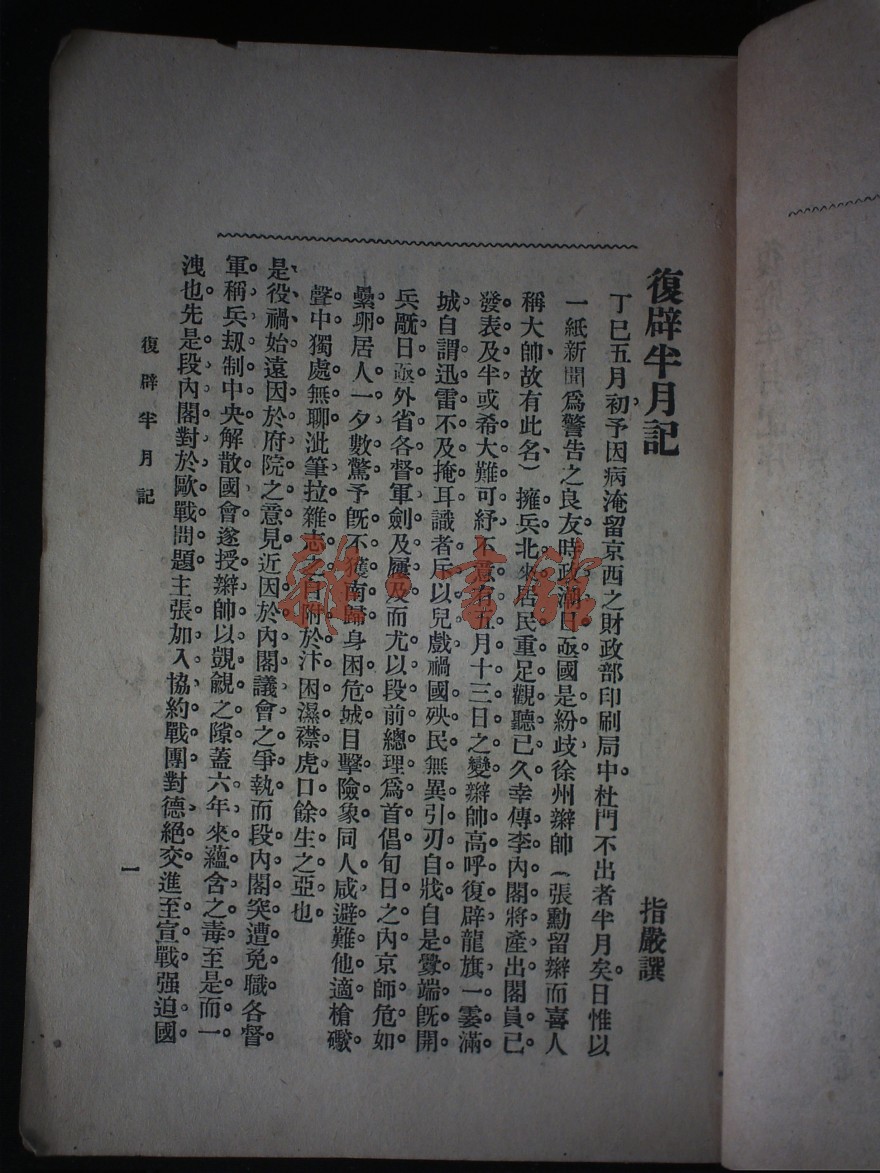 復辟半月記
指嚴譔
丁巳五月初予因病淹留京西之財政部印刷局中。杜門不出者半月矣。日惟以
一紙新聞爲警告之良友。時政滿日亟國是紛歧徐州辮帥(張勳留辮而喜人
稱大帥故有此名)擁兵北來居民重足觀聽已久幸傳李內閣將產出閣員已
發表及半或希大難可紓不意有五月十三日之變辮帥高呼復辟龍旗一霎滿
城自謂迅雷不及掩耳識者斥以兒戲禍國殃民無異引刃自戕自是釁端旣開
兵厩日亟外省各督軍劍及屨及而尤以段前總理爲首倡旬日之內京師危如
纍卵居人一夕數驚予旣不獲南歸身困危城目擊險象同人咸避難他適槍礮
聲中獨處無聊泚筆拉雜志之自附於汴困濕襟虎口餘生之亞也
是役禍始遠因於府院之意見近因於內閣議會之爭執而段內閣突遭免職各督
軍稱兵刼制中央解散國會遂授辮帥以覬覦之隙蓋六年來蘊含之毒至是而一
洩也先是段內閣對於歐戰問題主張加入協約戰團對德絕交進至宣戰强迫國
復辟半月記
一
雜·書館